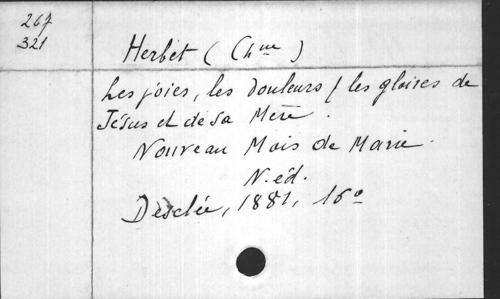 267
321
Herbet (Chne)
Les joies, les douleurs / les gloires de
Jésus et de sa Mère.
Nouveau Mois de Marie.
N. éd.
Desclée, 1881, 16º